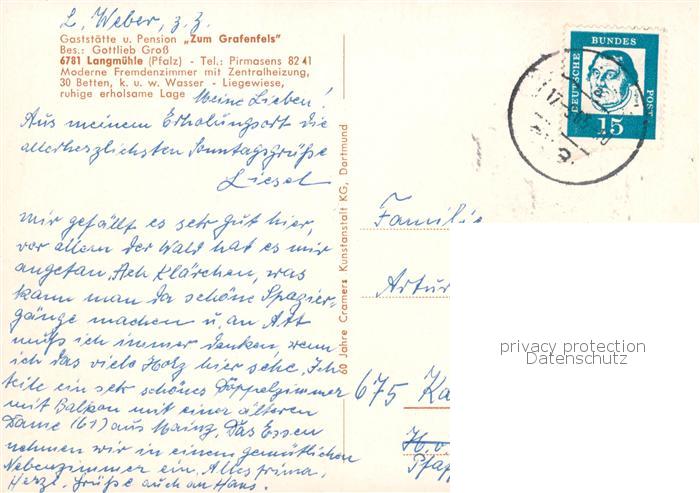 L. Weber, z. Z.
Gaststätte u. Pension „Zum Grafenfels"
Bes.: Gottlieb Groß
6781 Langmühle (Pfalz) - Tel.: Pirmasens 82 41
Moderne Fremdenzimmer mit Zentralheizung,
30 Betten, k. u. w. Wasser - Liegewiese,
ruhige erholsame Lage
Meine Lieben!
Aus meinem Erholungsort die
allerherzlichsten Sonntagsgrüße
Liesel
Mir gefällt es sehr gut hier,
vor allem der Wald hat es mir
angetan. Ach Klärchen, was
kann man da schöne Spazier-
gänge machen u. an Art
muß ich immer denken, wenn
ich das viele Holz hier sehe. Ich
teile ein sehr schönes Doppelzimmer
mit Balkon mit einer älteren
Dame (61) aus Mainz. Das Essen
nehmen wir in einem gemütlichen
Nebenzimmer ein. Alles prima.
Herzl. Grüße auch an Hans.
60 Jahre Cramers Kunstanstalt KG, Dortmund
DEUTSCHE BUNDES POST
15
Familie
Artur
675 Ka
privacy protection
Datenschutz